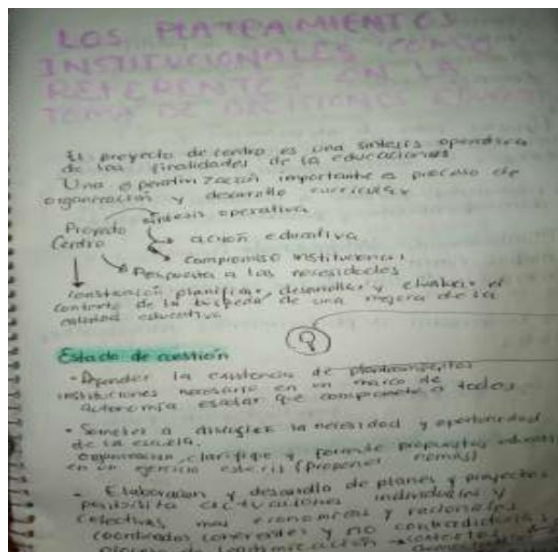 LOS PLATEAMIENTOS
INSTITUCIONALES COMO
REFERENTES EN LA
TOMA DE DECISIONES
El proyecto de centro es una sintesis operativa
de las finalidades de la educaciones
Una operativización importante es proceso de
organización y desarrollo curricular
Proyecto sintesis operativa
Centro acción educativa
compromiso institucional
Respuesta a las necesidades
construcción planificar, desarrollar y evaluar el
contexto de la busqueda de una mejora de la
calidad educativa
Estado de cuestión
• la existencia de planteamientos
instituciones necesario en un marco de
autonomía escolar que compromete a todos
• Someter a la necesidad y oportunidad
de la escuela.
organización, clarifique y permite propuestas
en un ejercicio (proponer normas)
• Elaboracion y desarrollo de planes y proyectos
posibilita actuaciones individuales y
colectivas mas economicas y racionales
coordinadas coherentes y no contradictorias
proceso de